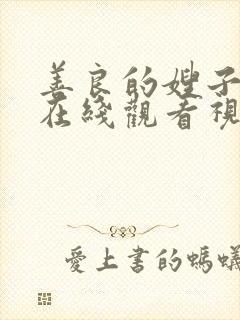 善良的嫂子
在綫觀看視
愛上書的螞蟻